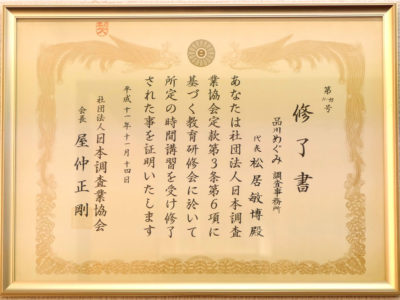 修了書
品川めぐみ調査事務所
代表 松居敏博殿
あなたは社団法人日本調査
業協会定款第3条第6項に
基づく教育研修会に於いて
所定の時間講習を受け修了
された事を証明いたします
平成十一年十一月十四日
社団法人日本調査業協会
会長 屋仲正剛